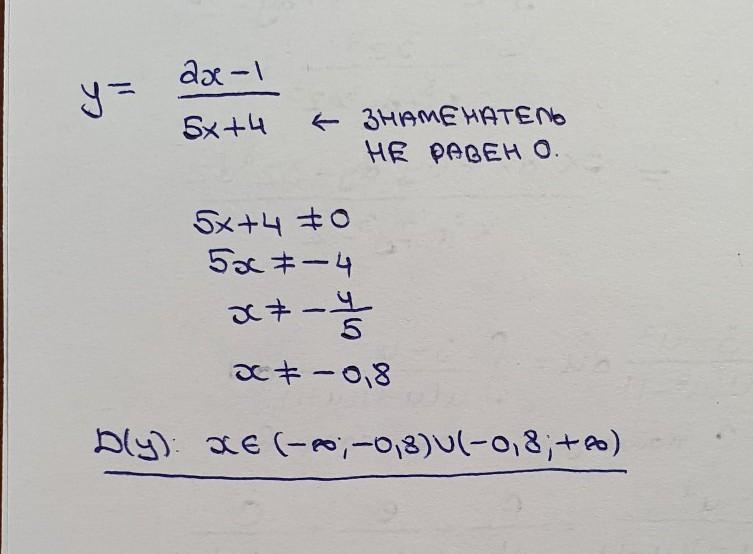 y = (2x-1)/(5x+4) ← ЗНАМЕНАТЕЛЬ
НЕ РАВЕН 0.
5x+4 ≠ 0
5x ≠ -4
x ≠ -4/5
x ≠ -0,8
D(y): x ∈ (-∞; -0,8) ∪ (-0,8; +∞)